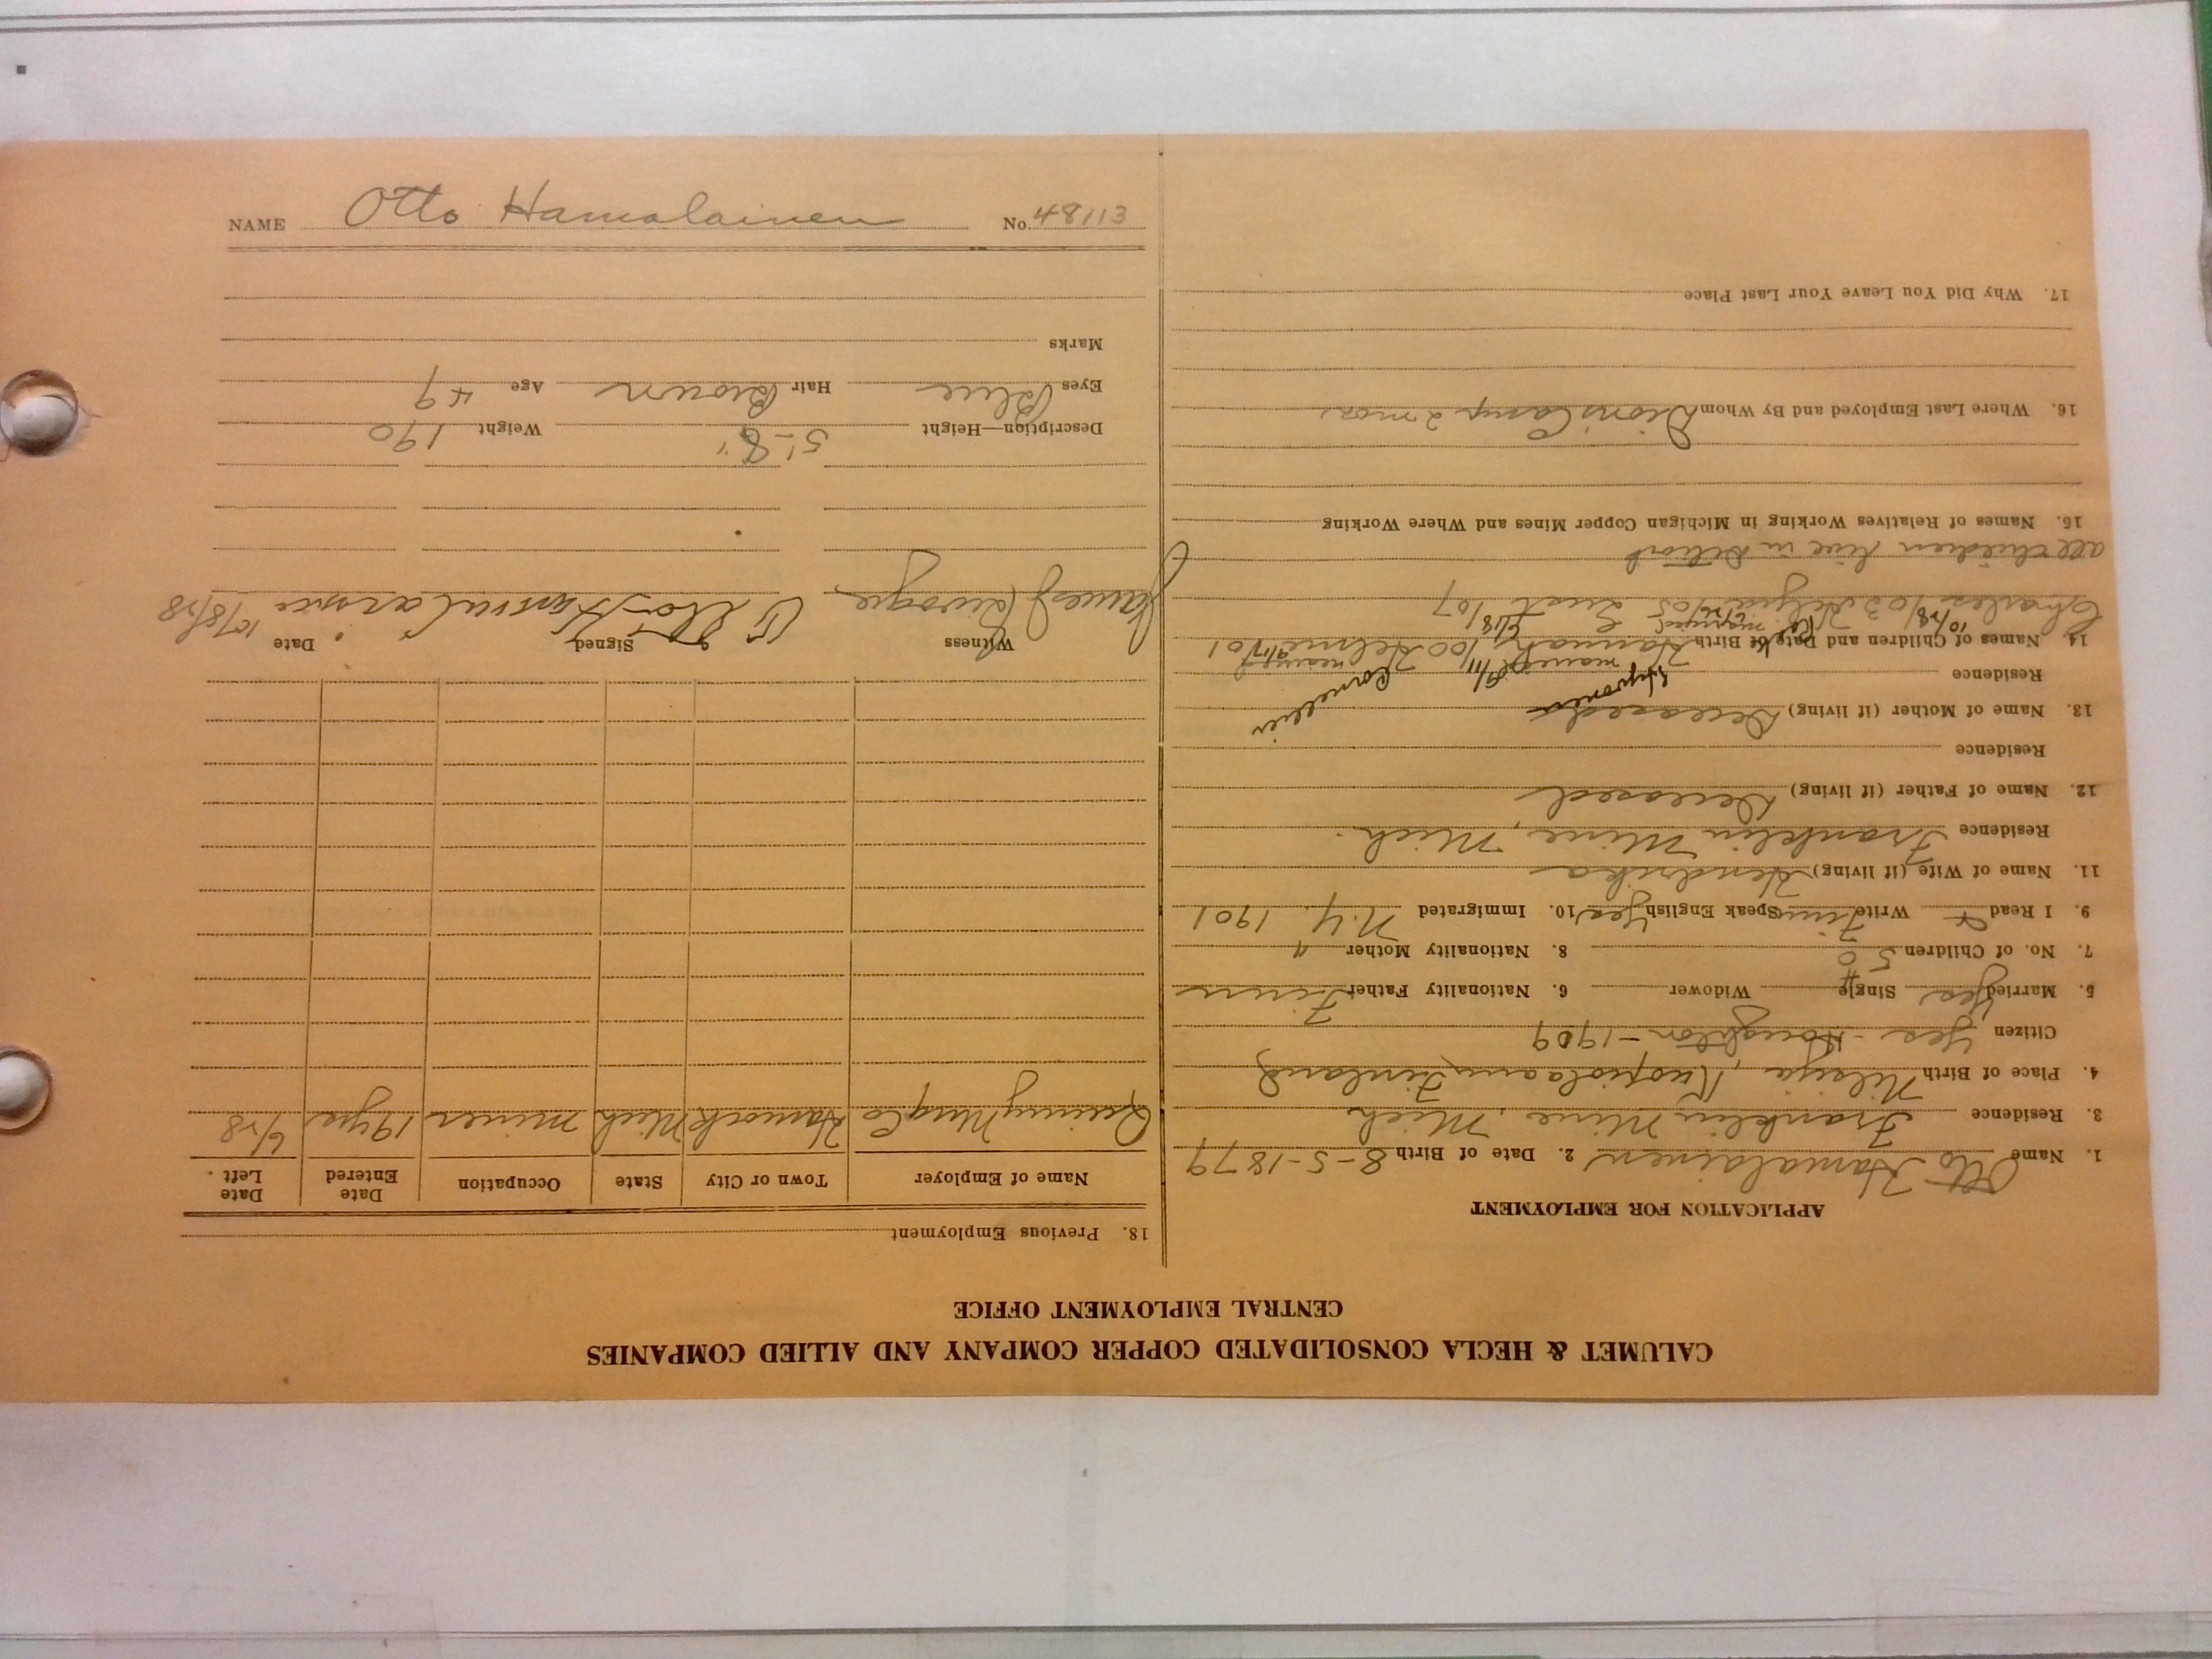 CALUMET & HECLA CONSOLIDATED COPPER COMPANY AND ALLIED COMPANIES
CENTRAL EMPLOYMENT OFFICE
APPLICATION FOR EMPLOYMENT
1. Name Otto Hamalainen 2. Date of Birth 8-5-1879
3. Residence Franklin Mine, Mich
4. Place of Birth Nilsiya, Kuopiolaani Finland
Citizen Yes - Houghton - 1909
5. Married Yes Single Widower 6. Nationality Father Finn
7. No. of Children 5 8. Nationality Mother "
9. I Read & Write Finn Speak English Yes 10. Immigrated N.Y. 1901
11. Name of Wife (if living) Hendrika
Residence Franklin Mine, Mich.
12. Name of Father (if living) Deceased
Residence
13. Name of Mother (if living) Deceased
Residence
14. Names of Children and Date of Birth Hannah /00 Helmi /01
Charles /03 Helga /05 /07
all children live in Detroit
15. Names of Relatives Working in Michigan Copper Mines and Where Working
16. Where Last Employed and By Whom Camp 2 mos.
17. Why Did You Leave Your Last Place
18. Previous Employment
Name of Employer Town or City State Occupation Date Entered Date Left
Quincy Mng Co Hancock Mich miner 19 yrs 6/28
Witness Signed Date
James Otto Hamalainen 10/8/28
Description—Height 5'-8" Weight 190
Eyes Blue Hair Brown Age 49
Marks
NAME Otto Hamalainen No. 48113